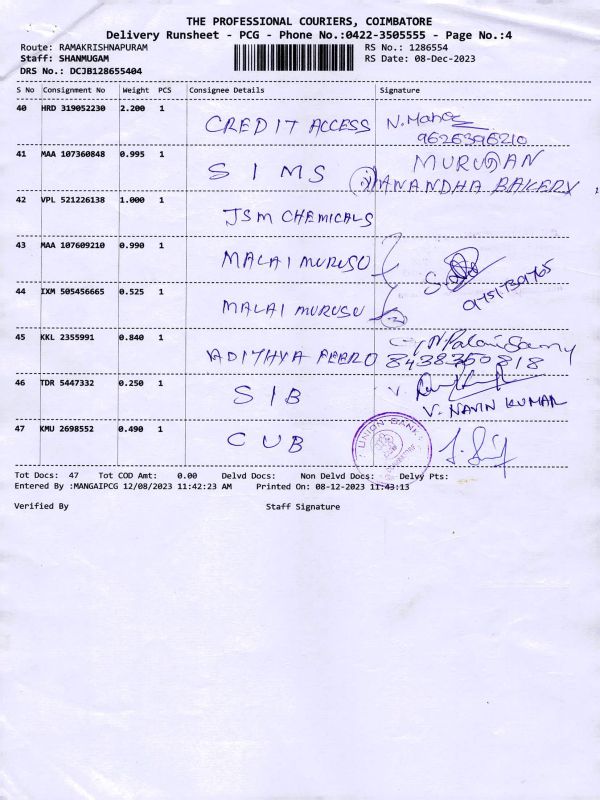 THE PROFESSIONAL COURIERS, COIMBATORE
Delivery Runsheet - PCG - Phone No.:0422-3505555 - Page No.:4
Route: RAMAKRISHNAPURAM RS No.: 1286554
Staff: SHANMUGAM RS Date: 08-Dec-2023
DRS No.: DCJB128655404
S No Consignment No Weight PCS Consignee Details Signature
40 HRD 319052230 2.200 1 CREDIT ACCESS
9626396210
41 MAA 107360848 0.995 1 SIMS MURUGAN
ANANDHA BAKERY
42 VPL 521226138 1.000 1 JSM CHEMICALS
43 MAA 107609210 0.990 1 MALAI MURUSU
44 IXM 505456665 0.525 1 MALAI MURUSU
45 KKL 2355991 0.840 1 ADITHYA FERRO
8438350818
46 TDR 5447332 0.250 1 SIB
V. NAVIN KUMAR
47 KMU 2698552 0.490 1 CUB UNION BANK
Tot Docs: 47 Tot COD Amt: 0.00 Delvd Docs: Non Delvd Docs: Delvy Pts:
Entered By :MANGAIPCG 12/08/2023 11:42:23 AM Printed On: 08-12-2023 11:43:13
Verified By Staff Signature